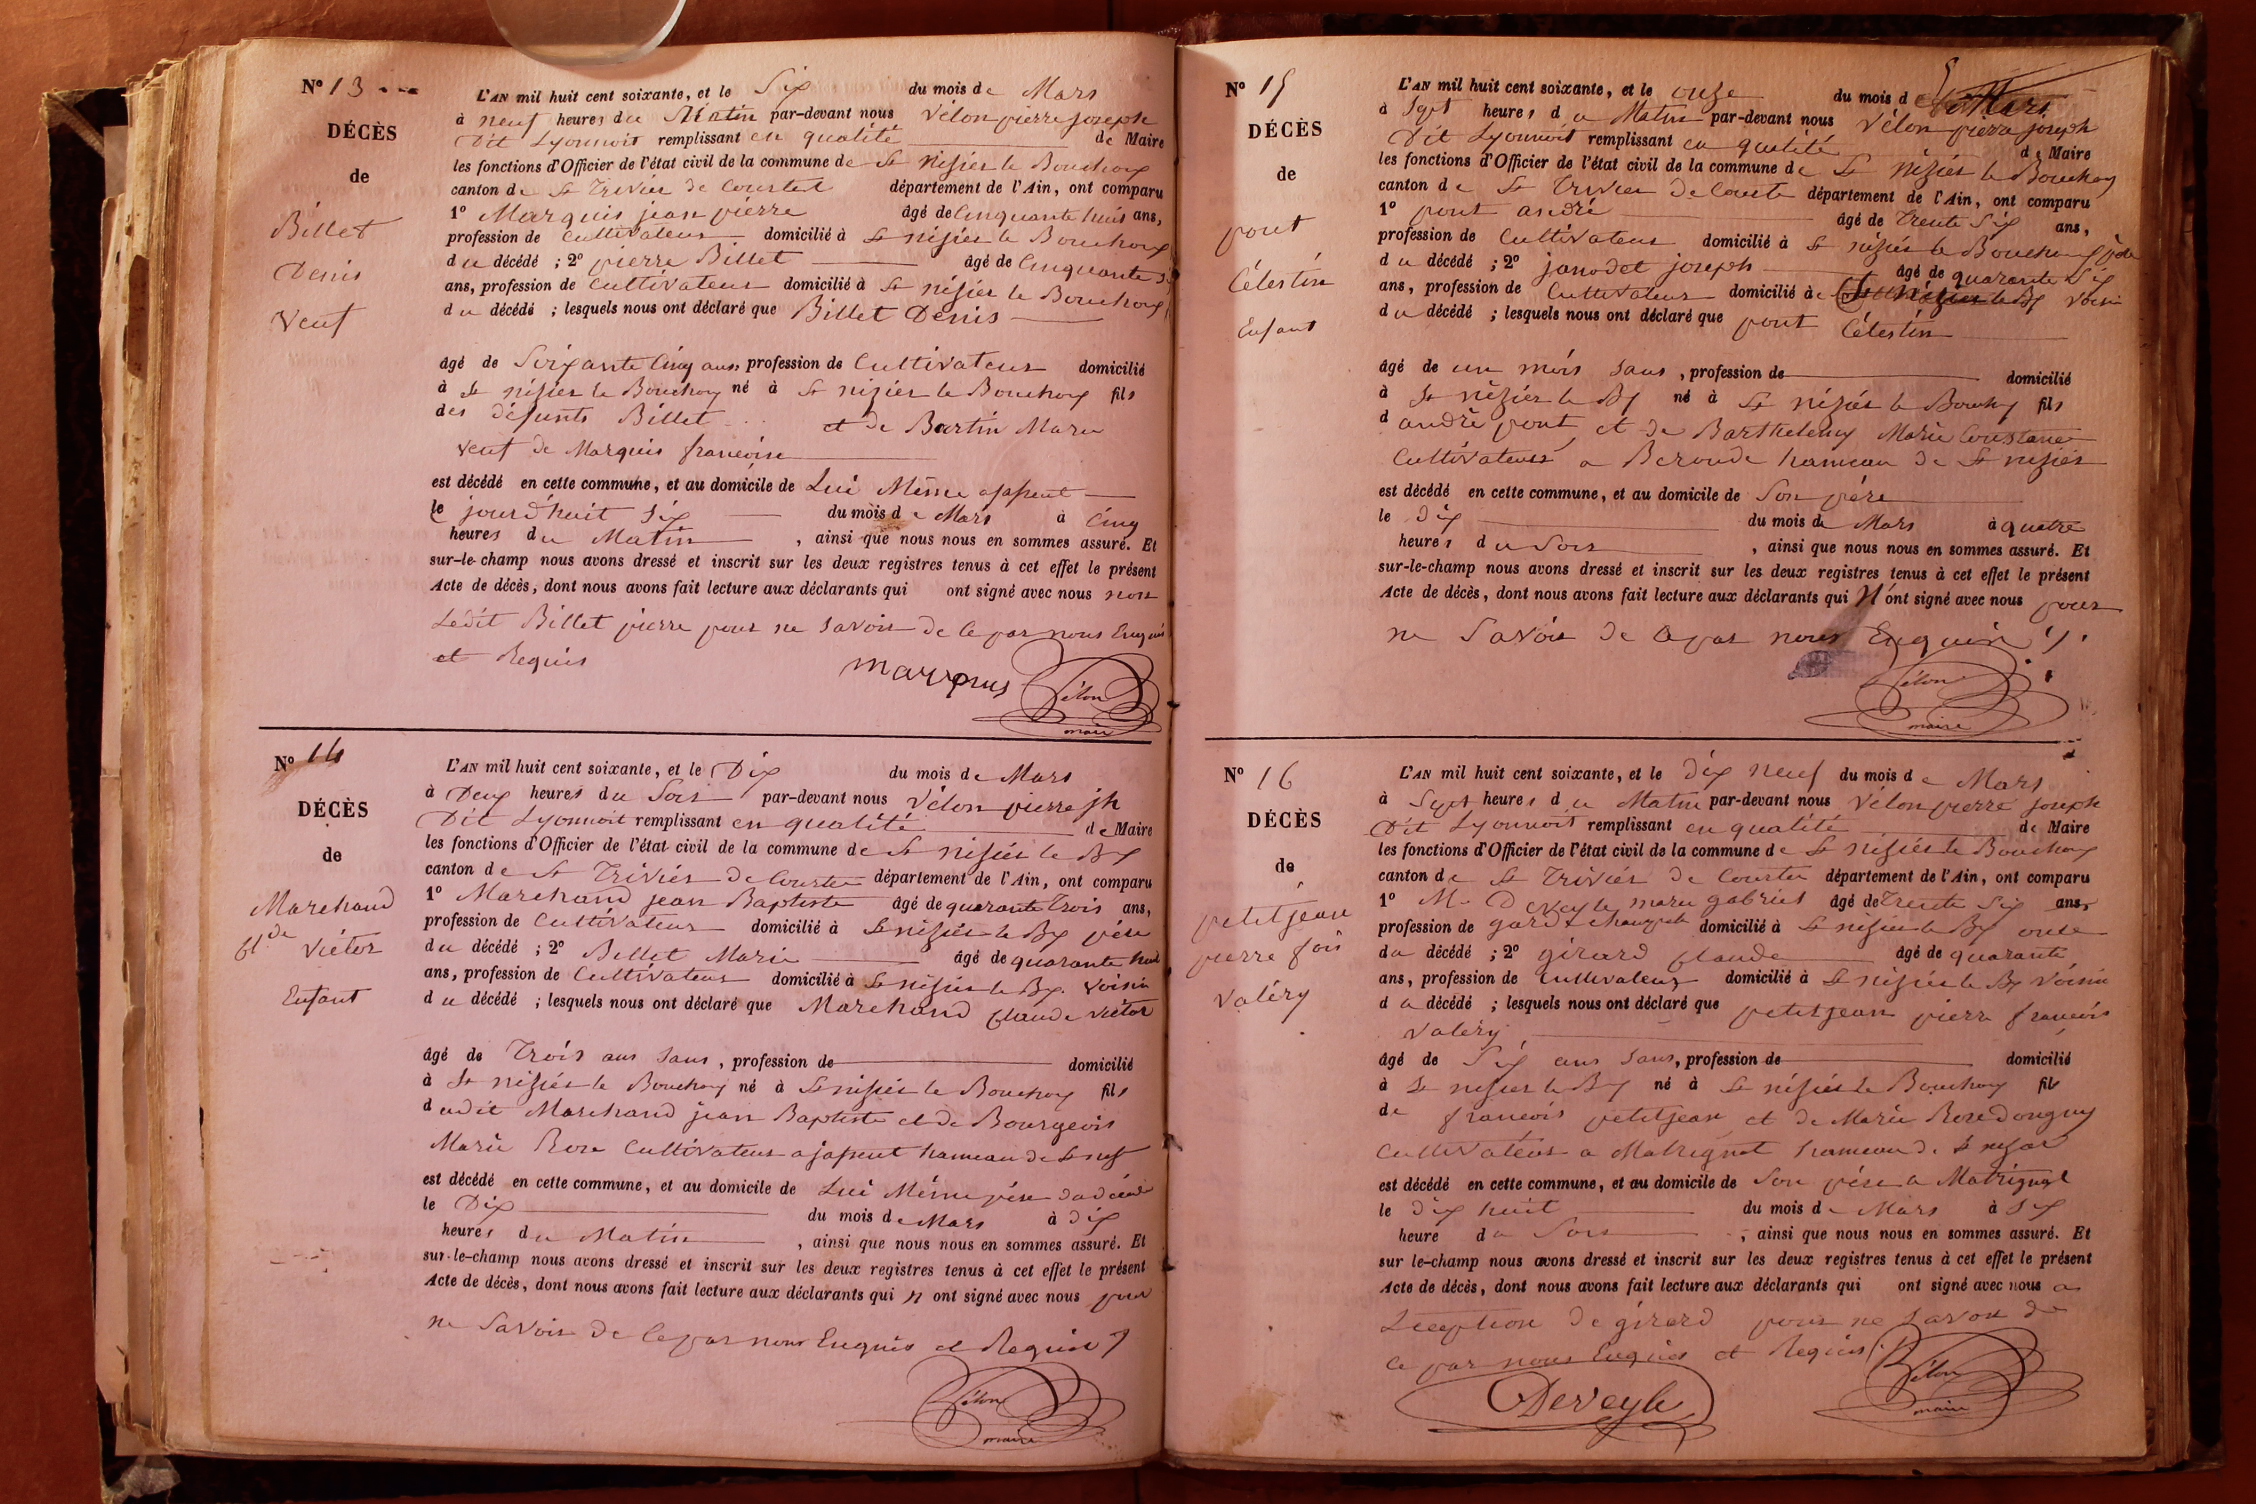 N° 13
DÉCÈS
de
Billet
Denis
Veuf
L'AN mil huit cent soixante, et le Six du mois de Mars
à neuf heures du Matin par-devant nous Vélon pierre joseph
Dit Lyonnoit remplissant en qualité de Maire
les fonctions d'Officier de l'état civil de la commune de St nizier le Bouchoux
canton de St Trivier de Courtes département de l'Ain, ont comparu
1° Marquis jean pierre âgé de Cinquante huit ans,
profession de Cultivateur domicilié à St nizier le Bouchoux
du décédé ; 2° pierre Billet âgé de Cinquante
ans, profession de Cultivateur domicilié à St nizier le Bouchoux
du décédé ; lesquels nous ont déclaré que Billet Denis
âgé de Soixante Cinq ans, profession de Cultivateur domicilié
à St nizier le Bouchoux né à St nizier le Bouchoux fils
des défunts Billet et de Bartin Marie
veuf de Marquis francoise
est décédé en cette commune, et au domicile de Lui Même
le jourd'huit Six du mois de Mars à Cinq
heures du Matin, ainsi que nous nous en sommes assuré. Et
sur-le-champ nous avons dressé et inscrit sur les deux registres tenus à cet effet le présent
Acte de décès, dont nous avons fait lecture aux déclarants qui ont signé avec nous non
Ledit Billet pierre pour ne savoir de ce par nous Enquis
et Requis
marquis Vélon
maire
N° 14
DÉCÈS
de
Marchand
Clde Victor
Enfant
L'AN mil huit cent soixante, et le Dix du mois de Mars
à Deux heures du Soir par-devant nous Vélon pierre jh
Dit Lyonnoit remplissant en qualité de Maire
les fonctions d'Officier de l'état civil de la commune de St nizier le Bx
canton de St Trivier de Courtes département de l'Ain, ont comparu
1° Marchand jean Baptiste âgé de quarante trois ans,
profession de Cultivateur domicilié à St nizier le Bx père
du décédé ; 2° Billet Marie âgé de quarante huit
ans, profession de Cultivateur domicilié à St nizier le Bx voisin
du décédé ; lesquels nous ont déclaré que Marchand Claude Victor
âgé de Trois ans sans, profession de domicilié
à St nizier le Bouchoux né à St nizier le Bouchoux fils
dudit Marchand jean Baptiste et de Bourgeois
Marie Rose Cultivateur a hameau de St
est décédé en cette commune, et au domicile de Lui Même père du décédé
le Dix du mois de Mars à dix
heures du Matin, ainsi que nous nous en sommes assuré. Et
sur-le-champ nous avons dressé et inscrit sur les deux registres tenus à cet effet le présent
Acte de décès, dont nous avons fait lecture aux déclarants qui n ont signé avec nous pour
ne Savoir de ce par nous Enquis et Requis
Vélon
maire
N° 15
DÉCÈS
de
pont
Célestin
Enfant
L'AN mil huit cent soixante, et le onze du mois de Mars
à Sept heures du Matin par-devant nous Vélon pierre joseph
Dit Lyonnoit remplissant en qualité de Maire
les fonctions d'Officier de l'état civil de la commune de St nizier le Bouchoux
canton de St Trivier de Courtes département de l'Ain, ont comparu
1° pont andré âgé de Trente Six ans,
profession de Cultivateur domicilié à St nizier le Bouchoux père
du décédé ; 2° janodet joseph âgé de quarante Six
ans, profession de Cultivateur domicilié à St nizier le Bx voisin
du décédé ; lesquels nous ont déclaré que pont Célestin
âgé de un mois sans, profession de domicilié
à St nizier le Bx né à St nizier le Bouchx fils
d andré pont et de Barthelemy Marie Constance
Cultivateurs a Beronde hameau de St nizier
est décédé en cette commune, et au domicile de Son père
le dix du mois de Mars à quatre
heures du Soir, ainsi que nous nous en sommes assuré. Et
sur-le-champ nous avons dressé et inscrit sur les deux registres tenus à cet effet le présent
Acte de décès, dont nous avons fait lecture aux déclarants qui N'ont signé avec nous pour
ne Savoir de ce par nous Enquis
Vélon
maire
N° 16
DÉCÈS
de
petitjean
pierre fois
Valéry
L'AN mil huit cent soixante, et le dix neuf du mois de Mars
à Sept heures du Matin par-devant nous Vélon pierre joseph
Dit Lyonnoit remplissant en qualité de Maire
les fonctions d'Officier de l'état civil de la commune de St nizier le Bouchoux
canton de St Trivier de Courtes département de l'Ain, ont comparu
1° M. Deveyle marie gabriel âgé de Trente Six ans,
profession de gard domicilié à St nizier le Bx
du décédé ; 2° girard Claude âgé de quarante
ans, profession de Cultivateur domicilié à St nizier le Bx Voisin
du décédé ; lesquels nous ont déclaré que petitjean pierre francois
Valéry
âgé de Six ans sans, profession de domicilié
à St nizier le Bx né à St nizier le Bouchoux fils
de francois petitjean et de Marie Rose Donguy
Cultivateurs a Matrignat hameau de St nizier
est décédé en cette commune, et au domicile de Son père a Matrignat
le dix huit du mois de Mars à Six
heure du Soir, ainsi que nous nous en sommes assuré. Et
sur le-champ nous avons dressé et inscrit sur les deux registres tenus à cet effet le présent
Acte de décès, dont nous avons fait lecture aux déclarants qui ont signé avec nous a
Lexeption de girard pour ne savoir de
ce par nous Enquis et Requis
Deveyle Vélon
maire